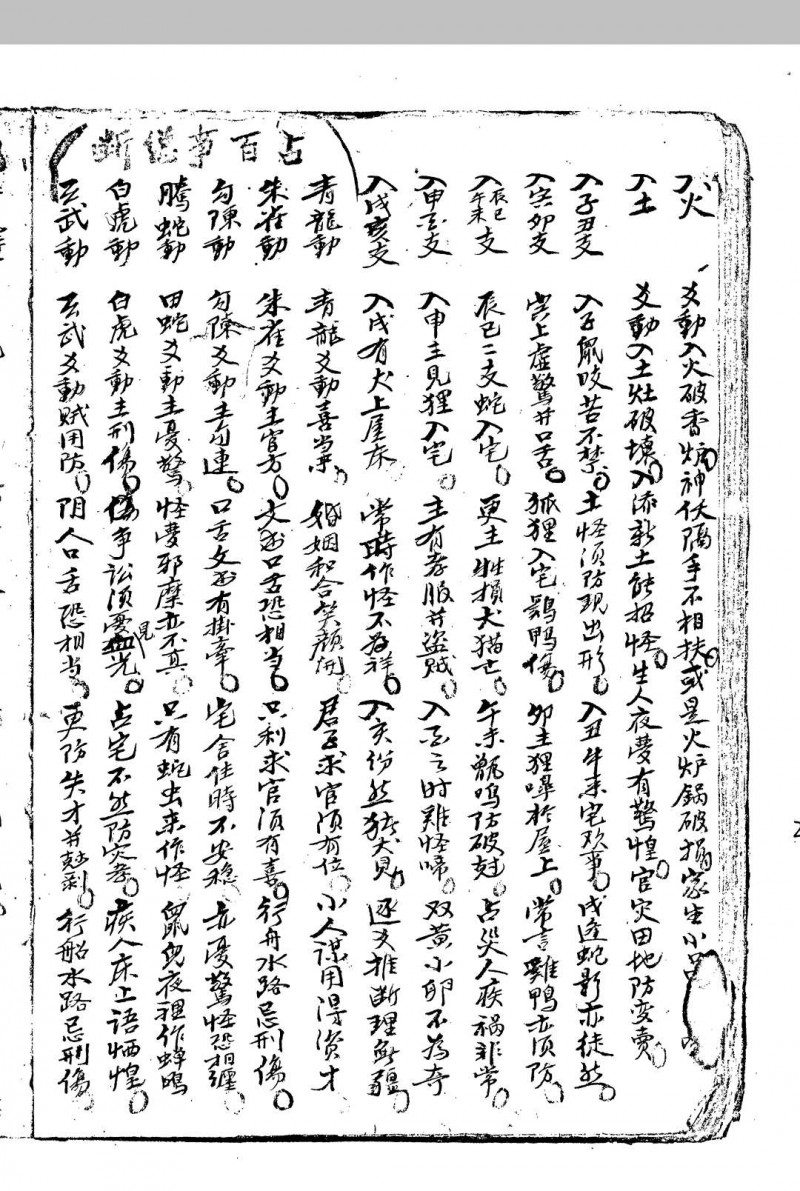 占百事總斷
入火 爻動入火破香炉 神伏隔手不相扶 或是火炉鍋破損 家生小
入土 爻動入土灶破壞 入添新土能招怪 生人夜夢有驚惶 官灾田地防変賣
入子丑支 入子鼠咬苦不禁 土怪須防現出形 入丑牛未宅欢事 戌逢蛇影亦徒然
入寅卯支 堂上虛驚并口舌 狐狸入宅鷄鴨傷 卯主狸嗥於屋上 常言雞鴨亦須防
入辰巳午未支 辰巳二支蛇入宅 更主牲損犬猫亡 午未甑鳴防破尅 占災人疾禍非常
入申酉支 入申主見狸入宅 主有孝服并盜賊 入酉之时雞怪啼 双黄小卵不為奇
入戌亥支 入戌有犬上屋床 常時作怪不為祥 入亥份然猪犬見 逐爻推断理無疆
青龍動 青龍爻動喜当来 婚姻和合笑顏開 君子求官須有位 小人謀用得資才
朱雀動 朱雀爻動主官方 文書口舌恐相当 只利求官須有喜 行舟水路忌刑傷
勾陳動 勾陳爻動主勾連 口舌文書有掛牽 宅舍住時不安穩 亦憂驚怪恐相纏
騰蛇動 田蛇爻動主憂驚 怪夢邪魔亦不真 只有蛇虫来作怪 鼠兒夜裡作蟬鳴
白虎動 白虎爻動主刑傷 傷事訟須要見血光 占宅不然防灾孝 疾人床上語恓惶
玄武動 玄武爻動賊用防 阴人口舌恐相当 更防失才并尅剥 行船水路忌刑傷